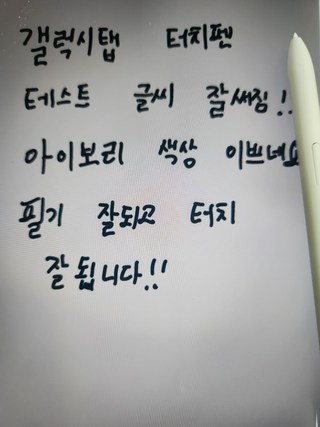 갤럭시탭 터치펜
테스트 글씨 잘써짐!!
아이보리 색상 이쁘네요
필기 잘되고 터치
잘됩니다!!